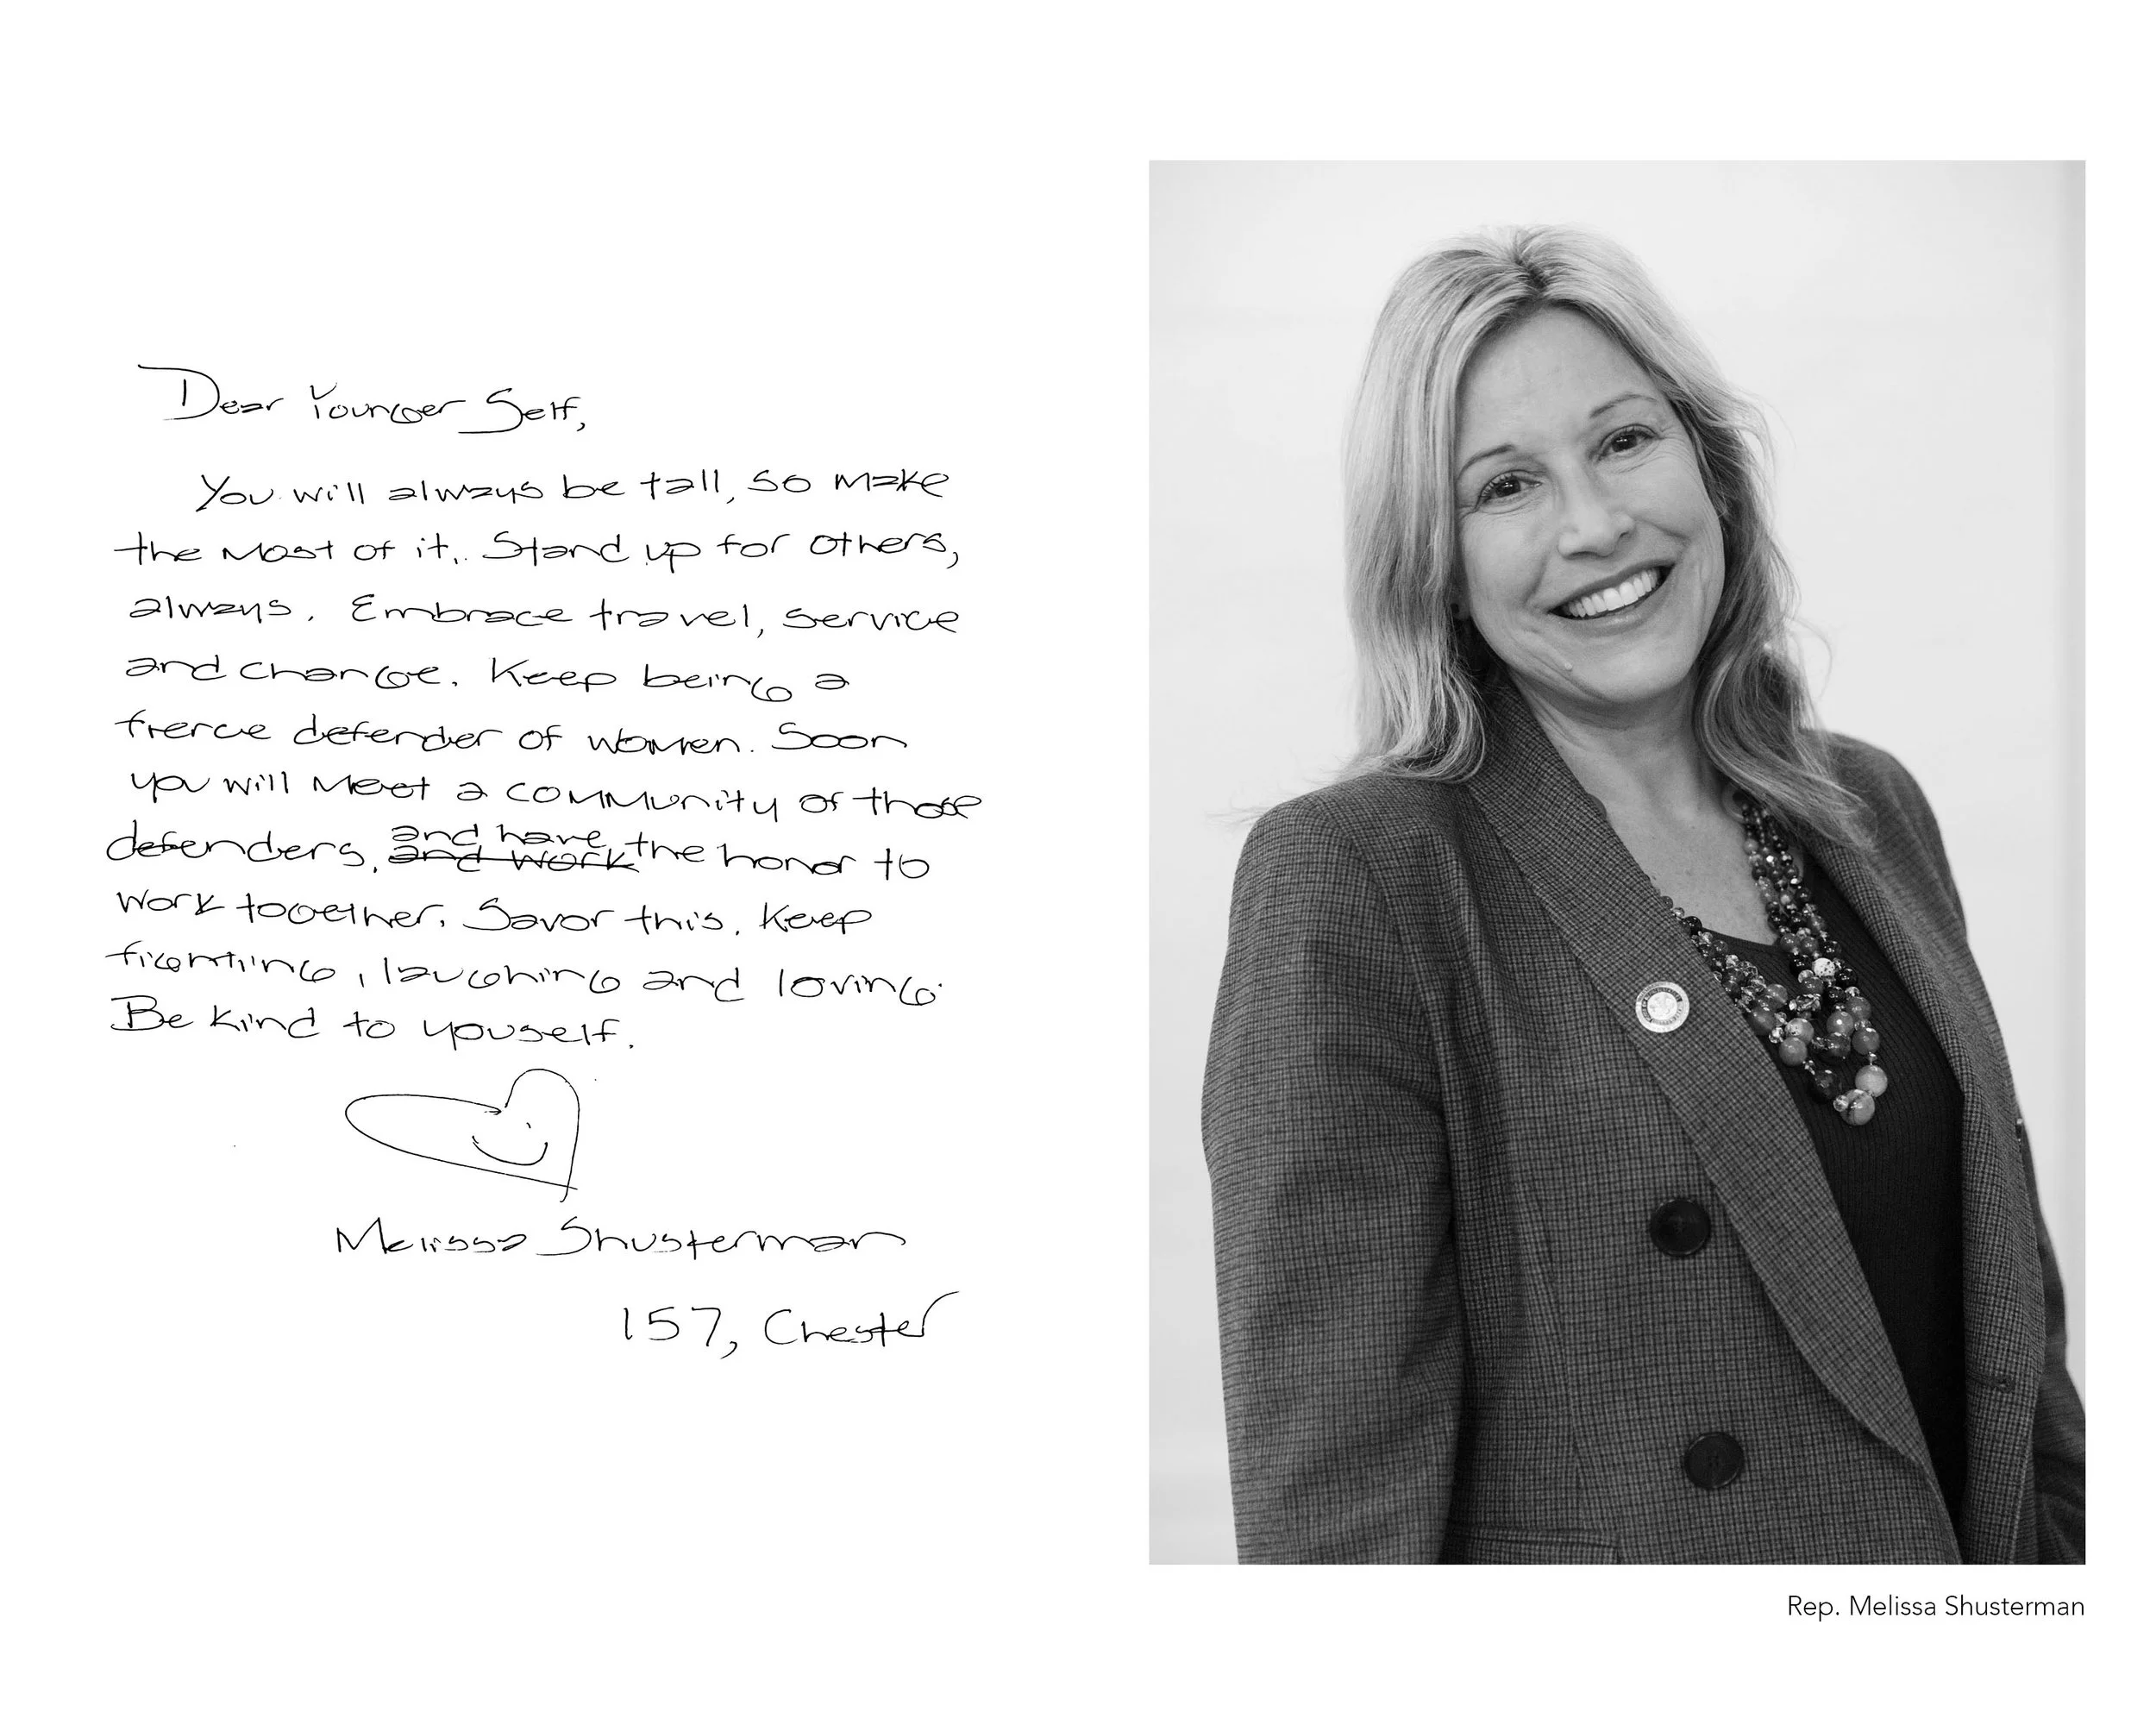 Dear Younger Self,
You will always be tall, so make
the most of it. Stand up for others,
always. Embrace travel, service
and change. Keep being a
fierce defender of women. Soon
you will meet a community of those
defenders, and have the honor to
and work
work together. Savor this. Keep
fighting, laughing and loving.
Be kind to youself.
Melissa Shusterman
157, Chester
Rep. Melissa Shusterman